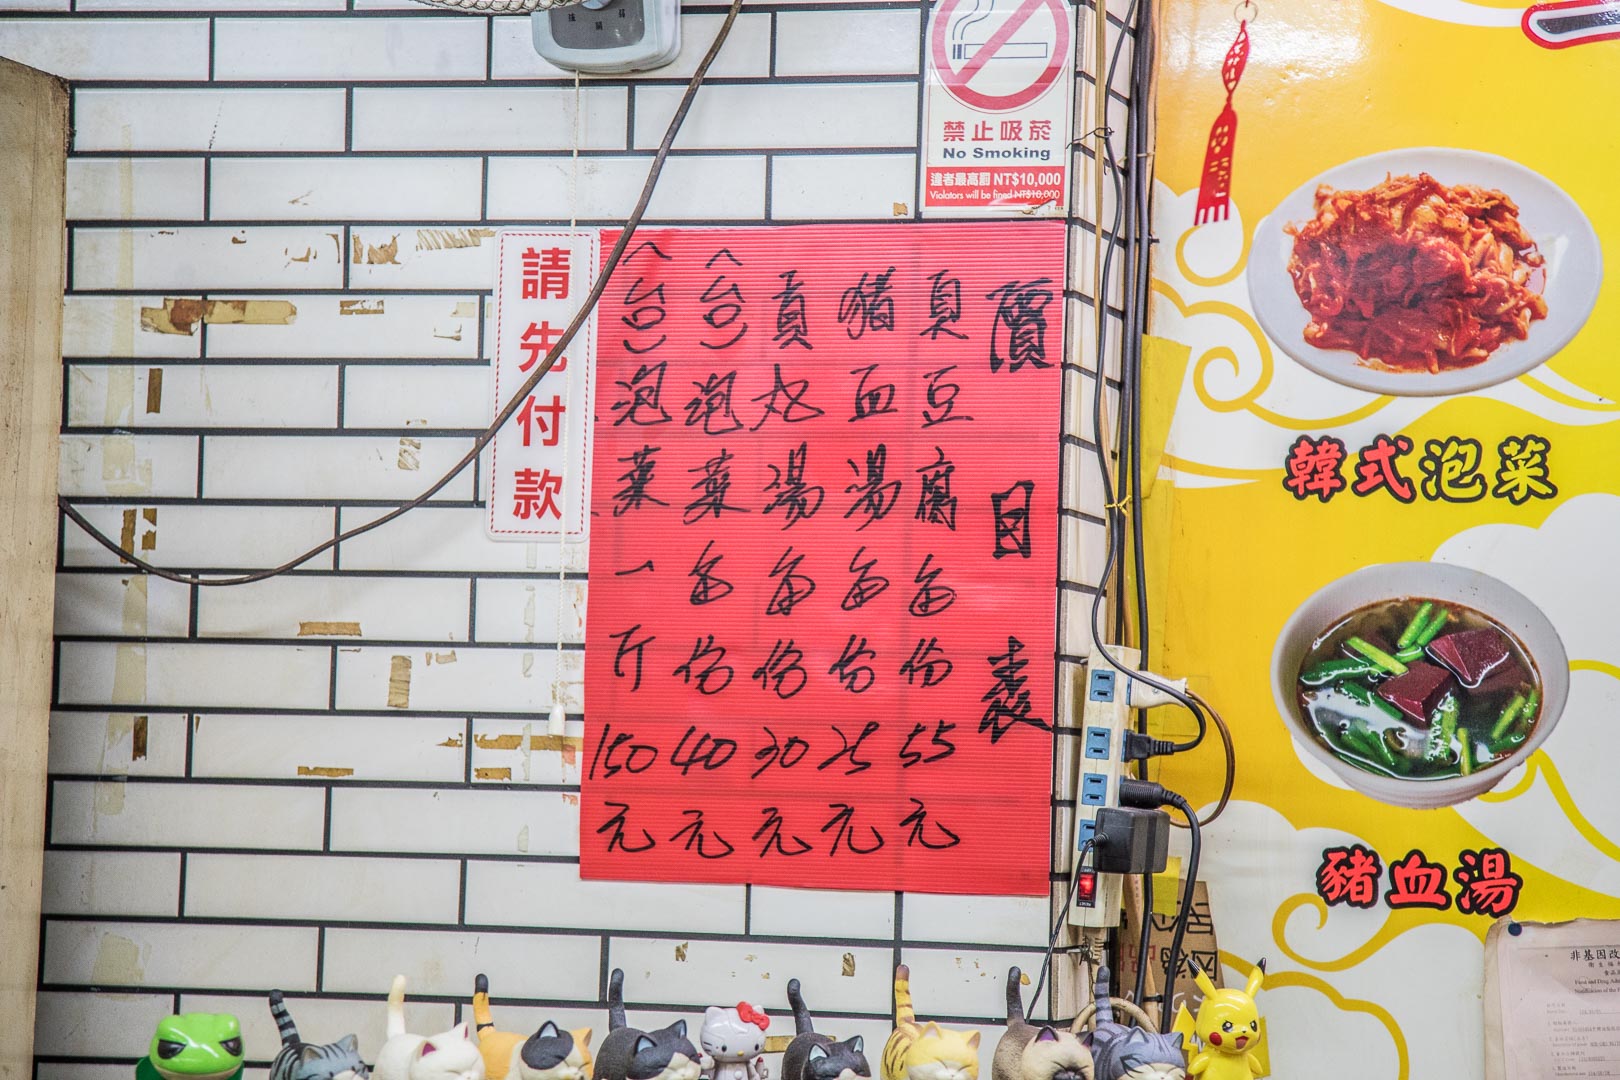 禁止吸菸
No Smoking
違者最高罰 NT$10,000
Violators will be fined NT$10,000
價目表
臭豆腐每份55元
豬血湯每份25元
貢丸湯每份30元
(台)泡菜每份40元
(台)泡菜一斤150元
請先付款
韓式泡菜
豬血湯
非基因改